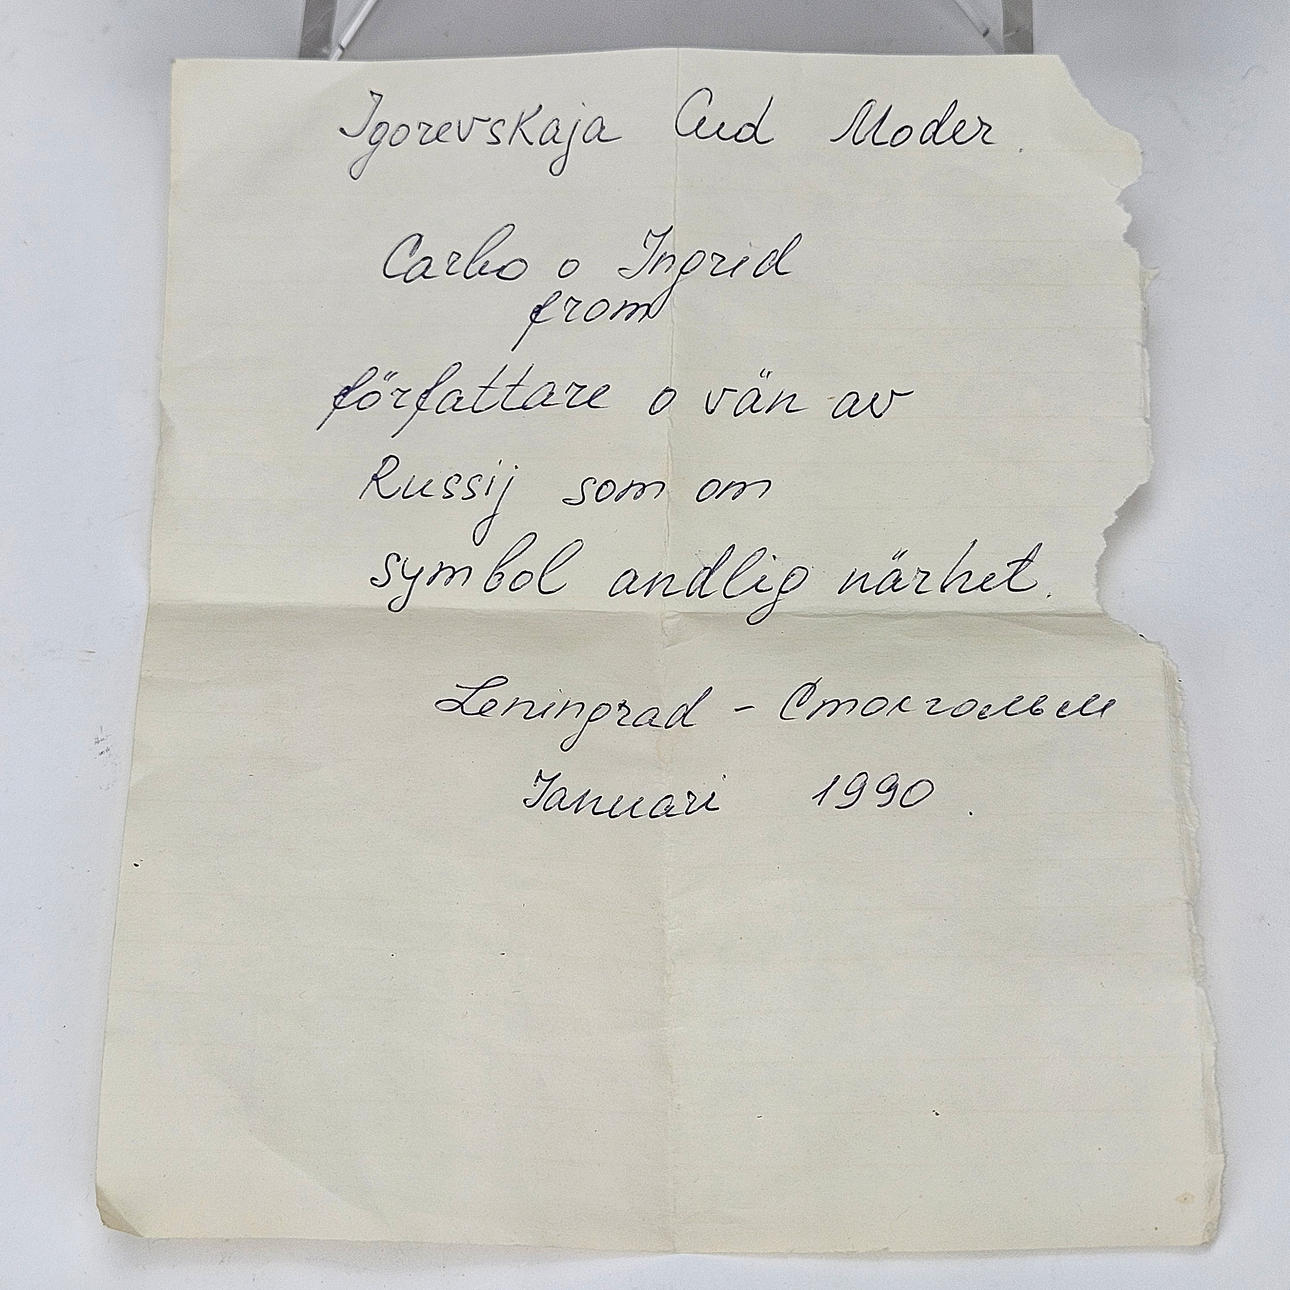 Igorevskaja Gud Moder.
Carbo o Ingrid
from
författare o vän av
Russij som om
symbol andlig närhet.
Leningrad - Стокгольм
Januari 1990.